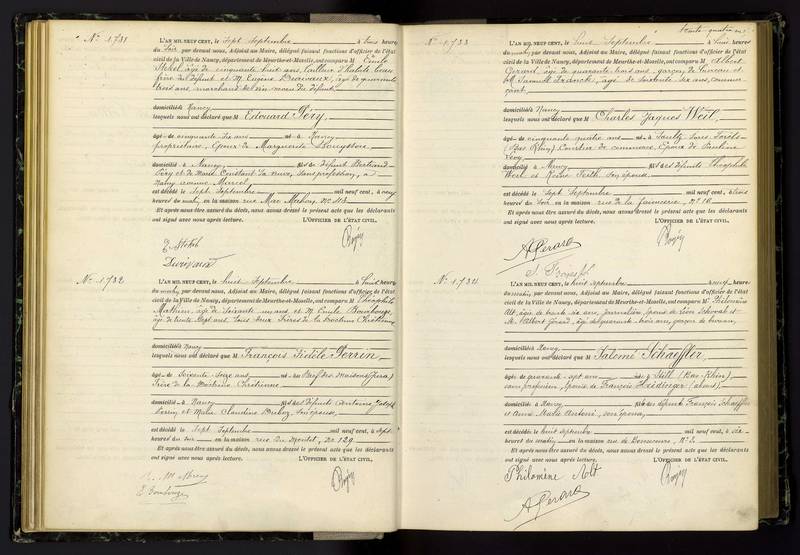 No 1731
L'AN MIL NEUF CENT, le sept Septembre à trois heures
du soir par devant nous, Adjoint au Maire, délégué faisant fonctions d'officier de l'état
civil de la Ville de Nancy, département de Meurthe-et-Moselle, ont comparu M Emile
âgé de cinquante huit ans, tailleur d'habits, beau
frère du défunt et M. Eugène âgé de quarante
trois ans, marchand de vin, neveu du défunt
domiciliés à Nancy
lesquels nous ont déclaré que M Edouard Péry,
âgé de cinquante six ans né à Nancy
propriétaire, époux de Marguerite
domicilié à Nancy, fils de défunt Bertrand
Péry et de Marie Constant sa veuve, sans profession, à
Nancy
est décédé le sept Septembre mil neuf cent, à neuf
heures du matin, en la maison rue Mac Mahon, No
Et après nous être assuré du décès, nous avons dressé le présent acte que les déclarants
ont signé avec nous après lecture. L'OFFICIER DE L'ÉTAT CIVIL,
No 1732
L'AN MIL NEUF CENT, le huit Septembre à huit heures
du matin, par devant nous, Adjoint au Maire, délégué faisant fonctions d'officier de l'état
civil de la Ville de Nancy, département de Meurthe-et-Moselle, ont comparu M Théophile
Mathieu, âgé de soixante un ans et M. Emile
âgé de trente sept ans, tous deux Frères de la Doctrine Chrétienne,
domiciliés à Nancy
lesquels nous ont déclaré que M François Fidèle Perrin,
âgé de soixante seize ans né au Bief des Maisons (Jura)
Frère de la Doctrine Chrétienne
domicilié à Nancy fils des défunts Antoine Joseph
Perrin et Marie Claudine son épouse,
est décédé le sept Septembre mil neuf cent, à sept
heures du soir en la maison rue du Montet, No 129
Et après nous être assuré du décès, nous avons dressé le présent acte que les déclarants
ont signé avec nous après lecture. L'OFFICIER DE L'ÉTAT CIVIL,
No 1733
L'AN MIL NEUF CENT, le huit Septembre à huit heures
du matin, par devant nous, Adjoint au Maire, délégué faisant fonctions d'officier de l'état
civil de la Ville de Nancy, département de Meurthe-et-Moselle, ont comparu M Albert
Gérard, âgé de quarante trois ans, garçon de bureau et
M. Samuel âgé de soixante six ans, commer-
çant,
domiciliés à Nancy
lesquels nous ont déclaré que M Charles Jaques Weil,
âgé de cinquante quatre ans né à Soultz sous Forêts
(Bas Rhin), Courtier de commerce, époux de Pauline
Lévy
domicilié à Nancy fils des défunts Théophile
Weil et Rosine son épouse
est décédé le sept Septembre mil neuf cent, à trois
heures du soir en la maison rue de la faïencerie, No 16
Et après nous être assuré du décès, nous avons dressé le présent acte que les déclarants
ont signé avec nous après lecture. L'OFFICIER DE L'ÉTAT CIVIL,
A Gérard
No 1734
L'AN MIL NEUF CENT, le huit septembre à neuf heures
du matin, par devant nous, Adjoint au Maire, délégué faisant fonctions d'officier de l'état
civil de la Ville de Nancy, département de Meurthe-et-Moselle, ont comparu Me Philomène
Alt, âgée de trente six ans, journalière, épouse de Léon Schwab et
M. Albert Gérard, âgé de quarante trois ans, garçon de bureau,
domiciliés à Nancy,
lesquels nous ont déclaré que M Salomé Schaeffler,
âgée de quarante sept ans née à Still (Bas-Rhin),
sans profession, épouse de François (absent),
domiciliée à Nancy fille des défunts François Schaeffler
et Anne Marie Antoni, son épouse,
est décédée le huit septembre mil neuf cent, à six
heures du matin, en la maison rue de Bonsecours, No
Et après nous être assuré du décès, nous avons dressé le présent acte que les déclarants
ont signé avec nous après lecture. L'OFFICIER DE L'ÉTAT CIVIL,
Philomène Alt
A Gérard